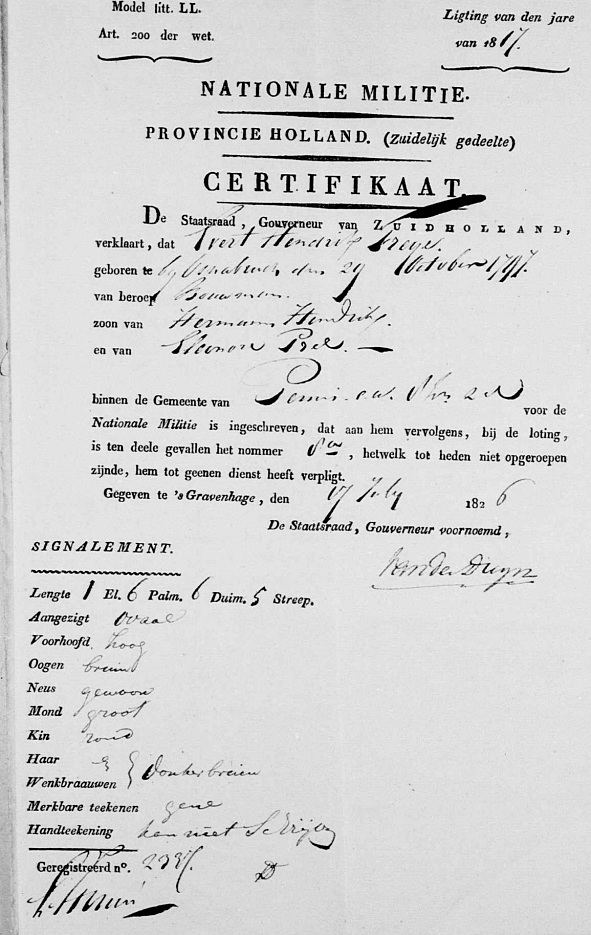 Model litt. LL.
Art. 200 der wet.
Ligting van den jare
van 1817.
NATIONALE MILITIE.
PROVINCIE HOLLAND. (Zuidelijk gedeelte)
CERTIFIKAAT.
De Staatsraad, Gouverneur van ZUIDHOLLAND,
verklaart, dat Evert Hendrik
geboren te by Osnabruck den 29 October 1797.
van beroep Bouwman.
zoon van Hermann Hendrik.
en van Eleonore
binnen de Gemeente van voor de
Nationale Militie is ingeschreven, dat aan hem vervolgens, bij de loting,
is ten deele gevallen het nommer , hetwelk tot heden niet opgeroepen
zijnde, hem tot geenen dienst heeft verpligt.
Gegeven te 's Gravenhage, den 17 July 1826
De Staatsraad, Gouverneur voornoemd,
van der Duyn
SIGNALEMENT.
Lengte 1 El. 6 Palm. 6 Duim. 5 Streep.
Aangezigt ovaal
Voorhoofd hoog
Oogen bruin
Neus gewoon
Mond groot
Kin rond
Haar
Wenkbraauwen donkerbruin
Merkbare teekenen gene
Handteekening kan niet schrijven
Geregistreerd no.